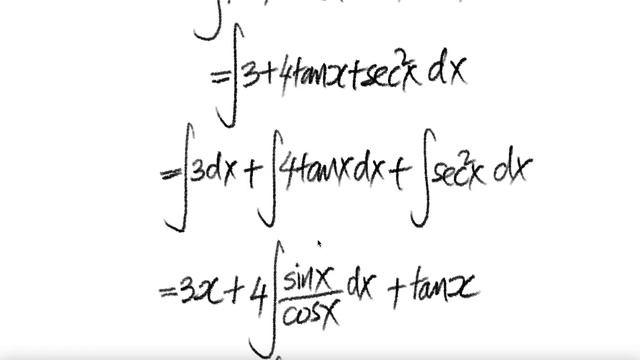 = ∫ 3+4tanx+sec²x dx
= ∫ 3dx + ∫ 4tanxdx + ∫ sec²x dx
= 3x + 4 ∫ sinx/cosx dx + tanx